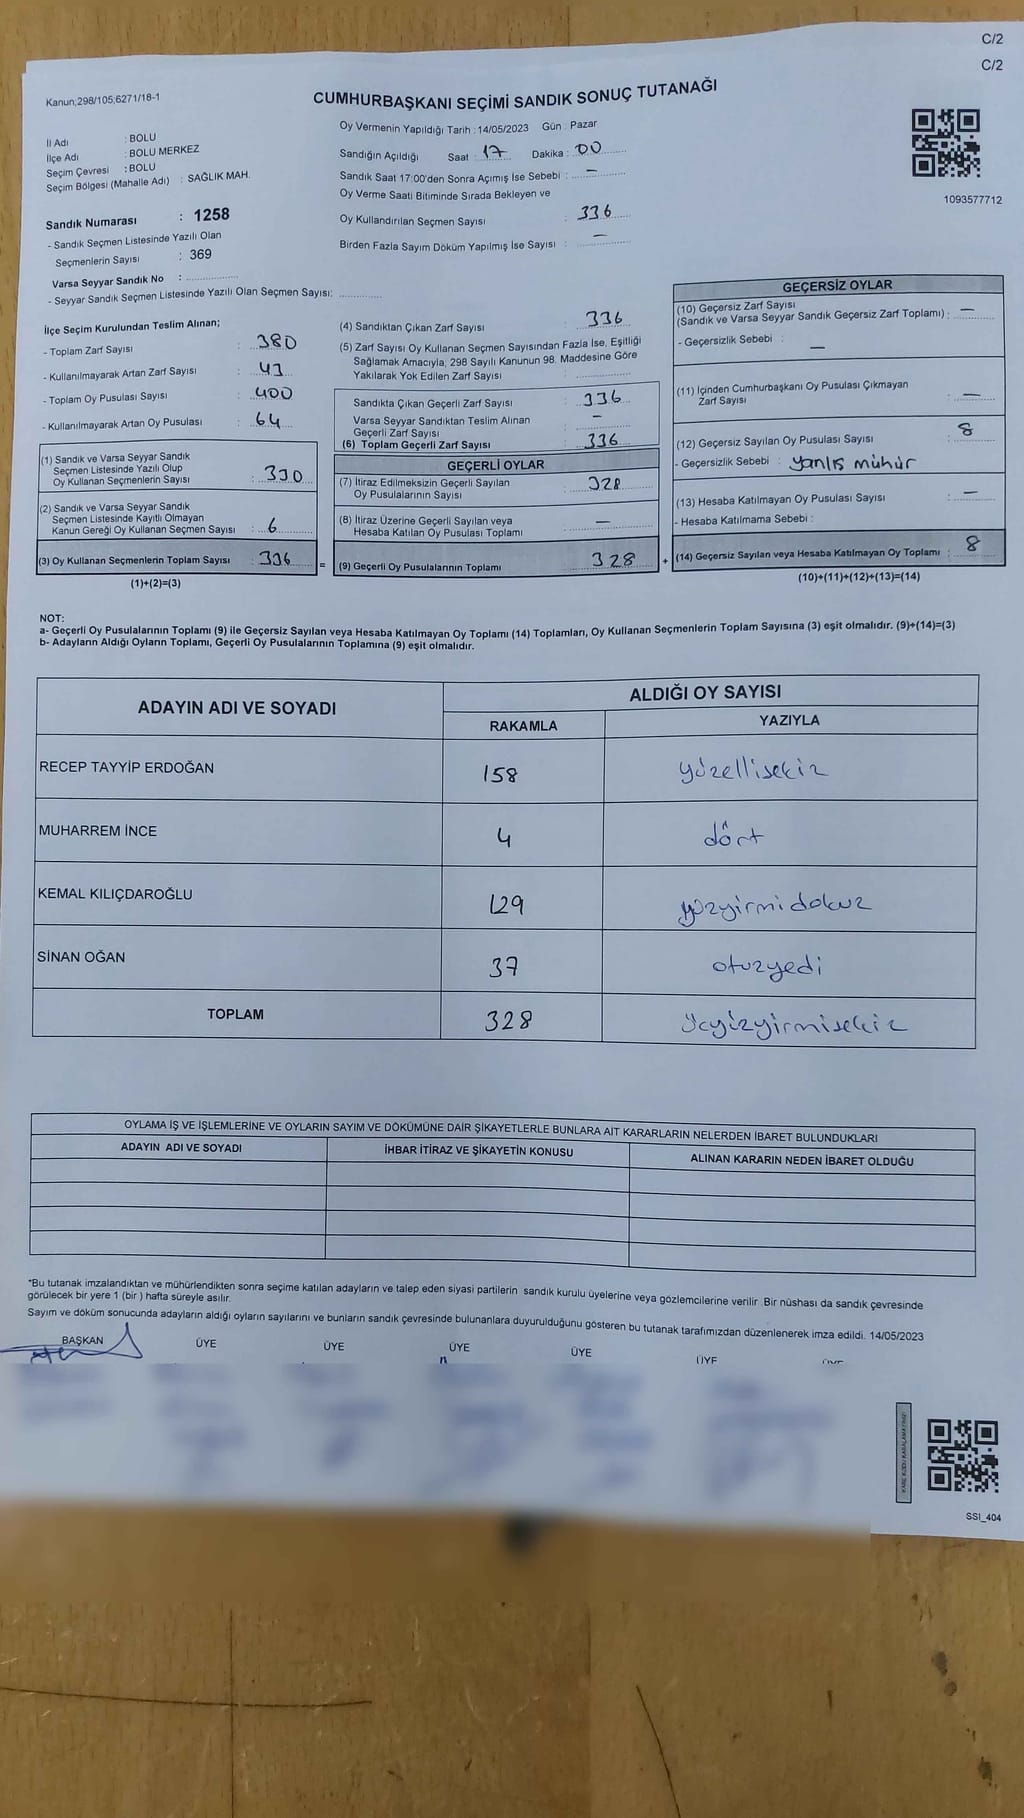 C/2
C/2
Kanun;298/105;6271/18-1
CUMHURBAŞKANI SEÇİMİ SANDIK SONUÇ TUTANAĞI
İl Adı : BOLU
İlçe Adı : BOLU MERKEZ
Seçim Çevresi : BOLU
Seçim Bölgesi (Mahalle Adı) : SAĞLIK MAH.
Sandık Numarası : 1258
- Sandık Seçmen Listesinde Yazılı Olan
Seçmenlerin Sayısı : 369
Varsa Seyyar Sandık No :
- Seyyar Sandık Seçmen Listesinde Yazılı Olan Seçmen Sayısı:
Oy Vermenin Yapıldığı Tarih : 14/05/2023 Gün : Pazar
Sandığın Açıldığı Saat : 17 Dakika : 00
Sandık Saat 17:00'den Sonra Açımış İse Sebebi : —
Oy Verme Saati Bitiminde Sırada Bekleyen ve
Oy Kullandırılan Seçmen Sayısı : 336
Birden Fazla Sayım Döküm Yapılmış İse Sayısı : —
1093577712
İlçe Seçim Kurulundan Teslim Alınan;
- Toplam Zarf Sayısı : 380
- Kullanılmayarak Artan Zarf Sayısı : 43
- Toplam Oy Pusulası Sayısı : 400
- Kullanılmayarak Artan Oy Pusulası : 64
(1) Sandık ve Varsa Seyyar Sandık
Seçmen Listesinde Yazılı Olup
Oy Kullanan Seçmenlerin Sayısı : 330
(2) Sandık ve Varsa Seyyar Sandık
Seçmen Listesinde Kayıtlı Olmayan
Kanun Gereği Oy Kullanan Seçmen Sayısı : 6
(3) Oy Kullanan Seçmenlerin Toplam Sayısı : 336 =
(1)+(2)=(3)
(4) Sandıktan Çıkan Zarf Sayısı : 336
(5) Zarf Sayısı Oy Kullanan Seçmen Sayısından Fazla İse, Eşitliği
Sağlamak Amacıyla; 298 Sayılı Kanunun 98. Maddesine Göre
Yakılarak Yok Edilen Zarf Sayısı :
Sandıkta Çıkan Geçerli Zarf Sayısı : 336
Varsa Seyyar Sandıktan Teslim Alınan
Geçerli Zarf Sayısı : —
(6) Toplam Geçerli Zarf Sayısı : 336
GEÇERLİ OYLAR
(7) İtiraz Edilmeksizin Geçerli Sayılan
Oy Pusulalarının Sayısı : 328
(8) İtiraz Üzerine Geçerli Sayılan veya
Hesaba Katılan Oy Pusulası Toplamı : —
(9) Geçerli Oy Pusulalarının Toplamı : 328 +
GEÇERSİZ OYLAR
(10) Geçersiz Zarf Sayısı
(Sandık ve Varsa Seyyar Sandık Geçersiz Zarf Toplamı) : —
- Geçersizlik Sebebi : —
(11) İçinden Cumhurbaşkanı Oy Pusulası Çıkmayan
Zarf Sayısı : —
(12) Geçersiz Sayılan Oy Pusulası Sayısı : 8
- Geçersizlik Sebebi : yanlış mühür
(13) Hesaba Katılmayan Oy Pusulası Sayısı : —
- Hesaba Katılmama Sebebi :
(14) Geçersiz Sayılan veya Hesaba Katılmayan Oy Toplamı : 8
(10)+(11)+(12)+(13)=(14)
NOT:
a- Geçerli Oy Pusulalarının Toplamı (9) ile Geçersiz Sayılan veya Hesaba Katılmayan Oy Toplamı (14) Toplamları, Oy Kullanan Seçmenlerin Toplam Sayısına (3) eşit olmalıdır. (9)+(14)=(3)
b- Adayların Aldığı Oyların Toplamı, Geçerli Oy Pusulalarının Toplamına (9) eşit olmalıdır.
ADAYIN ADI VE SOYADI ALDIĞI OY SAYISI
RAKAMLA YAZIYLA
RECEP TAYYİP ERDOĞAN 158 yüzellisekiz
MUHARREM İNCE 4 dört
KEMAL KILIÇDAROĞLU 129 yüzyirmidokuz
SİNAN OĞAN 37 otuzyedi
TOPLAM 328 üçyüzyirmisekiz
OYLAMA İŞ VE İŞLEMLERİNE VE OYLARIN SAYIM VE DÖKÜMÜNE DAİR ŞİKAYETLERLE BUNLARA AİT KARARLARIN NELERDEN İBARET BULUNDUKLARI
ADAYIN ADI VE SOYADI İHBAR İTİRAZ VE ŞİKAYETİN KONUSU ALINAN KARARIN NEDEN İBARET OLDUĞU
*Bu tutanak imzalandıktan ve mühürlendikten sonra seçime katılan adayların ve talep eden siyasi partilerin sandık kurulu üyelerine veya gözlemcilerine verilir. Bir nüshası da sandık çevresinde
görülecek bir yere 1 (bir ) hafta süreyle asılır.
Sayım ve döküm sonucunda adayların aldığı oyların sayılarını ve bunların sandık çevresinde bulunanlara duyurulduğunu gösteren bu tutanak tarafımızdan düzenlenerek imza edildi. 14/05/2023
BAŞKAN ÜYE ÜYE ÜYE ÜYE ÜYE
SSI_404